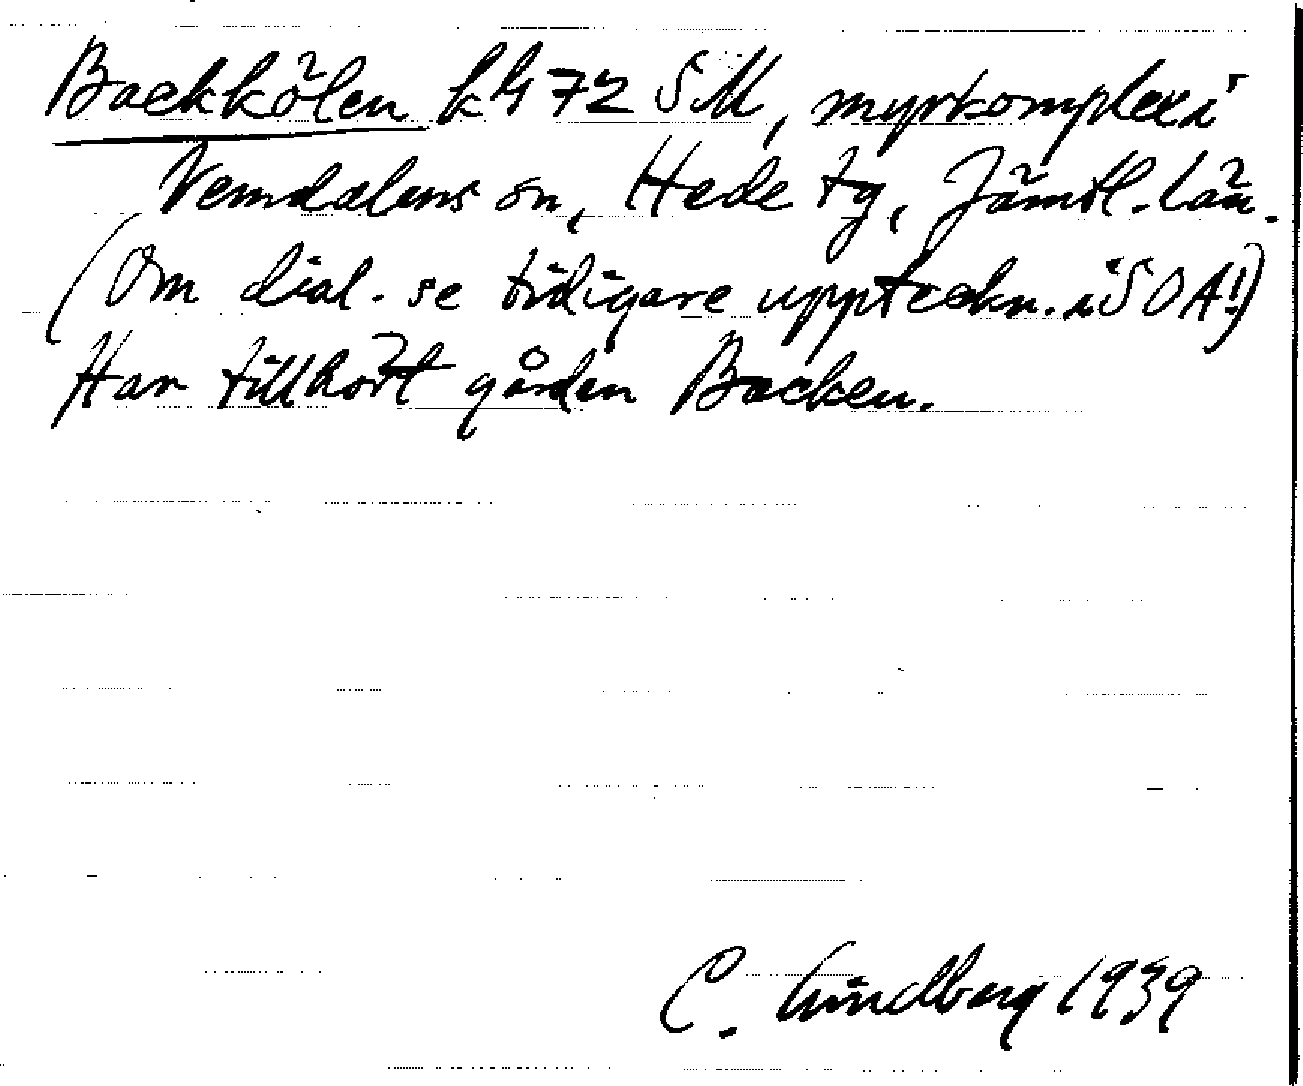 Backkölen kh 72 SM, myrkomplex i
Vemdalens sn, Hede tg, Jämtl. län.
(Om dial. se tidigare uppteckn. i SOA!)
Har tillhört gården Backen.
C. Lindberg 1939